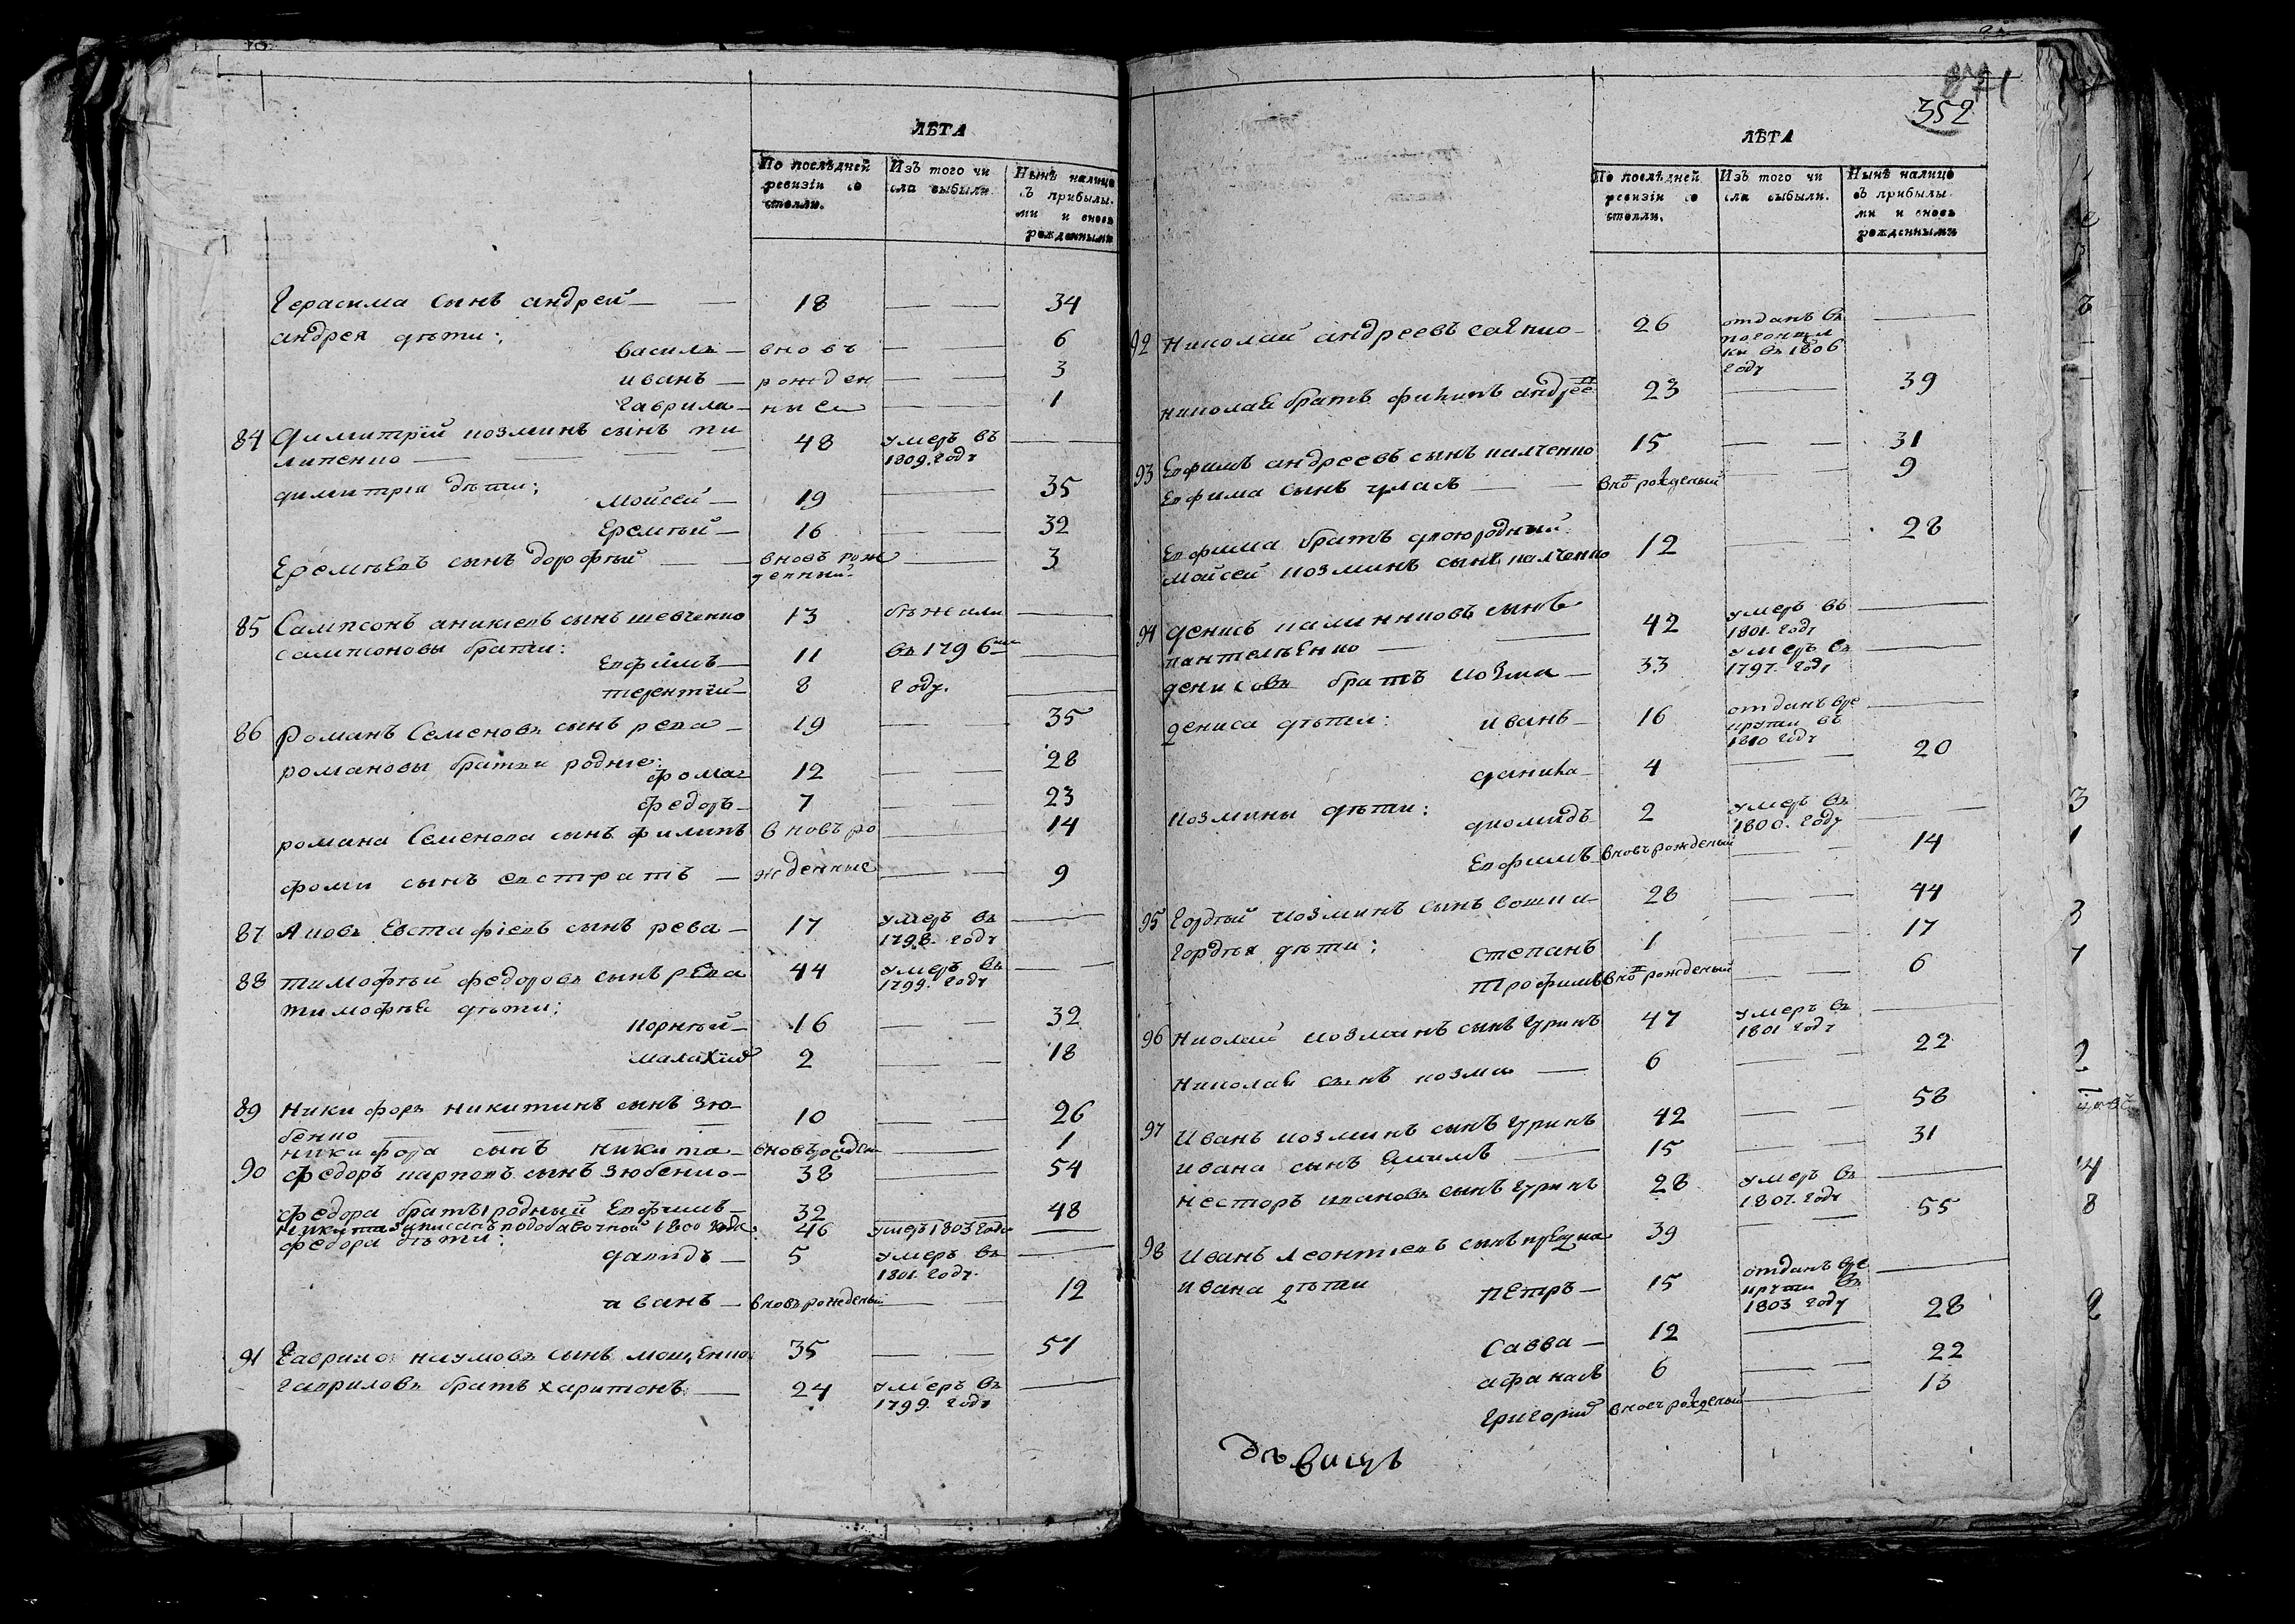 ЛѢТА
По послѣдней ревизіи состояли.
Изъ того числа выбыли.
Нынѣ налицо съ прибылыми и вновь рожденными
Герасима сынъ андрей — 18 — — 34
андрея дѣти:
василь — вновь — — 6
иванъ — рожден — — 3
гаврила — ные — — 1
84 Димитрїй козминъ сынъ пи
липенко — 48 умеръ въ 1809. году —
димитрїя дѣти;
мойсей — 19 — 35
Еремѣй — 16 — 32
Еремѣевъ сынъ дорофѣй — вновь рож
денный — 3
85 Сампсонъ аникіевъ сынъ шевченко 13 бѣжали —
сампсоновы братя: Евфимъ — 11 въ 1796мъ —
терентїй — 8 году. —
86 романъ Семеновъ сынъ рева — 19 — — 35
романовы братья родніе:
фома 12 — — 28
федоръ — 7 — — 23
романа Семенова сынъ филипъ вновъ ро — 14
фоми сынъ евстратъ — жденные — 9
87 Яковъ Евстафіевъ сынъ рева — 17 умеръ въ 1798. году —
88 тимофѣй федоровъ сынъ рева 44 умеръ въ 1799. году —
тимофѣя дѣти;
корнѣй — 16 — — 32
малахїй 2 — 18
89 Никифоръ никитинъ сынъ зю-
бенко — 10 — — 26
никифора сынъ никита — вновърожден — 1
90 федоръ карповъ сынъ зюбенко — 38 — 54
федора братъ родный Евфимъ — 32 — 48
Никита записанъ подобавочной 1800 года. 46 умеръ 1803 года —
федора дѣти:
давидъ — 5 умеръ въ 1801. году. —
иванъ — вновърожденый — 12
91 Гаврило наумовъ сынъ мощенко 35 — — 51
гавриловъ братъ харитонъ — 24 умеръ въ 1799. году —
352
ЛѢТА
По послѣдней ревизіи состояли.
Изъ того числа выбыли.
Нынѣ налицо съ прибылыми и вновь рожденными
92 Николай андреевъ — 26 отданъ въ
въ 1806 году —
николая братъ филипъ андрее 23 — 39
93 Евфимъ андреевъ сынъ калченко 15 — — 31
Евфима сынъ власъ — вно рожденый — 9
Евфима братъ двоюродный
мойсей козминъ сынъ калченко 12 — 28
94 денисъ сынъ
пантелѣенко — 42 умеръ въ 1801. году —
денисовъ братъ козма — 33 умеръ въ 1797. году
дениса дѣти: иванъ — 16 отданъ вре
крути въ 1810 году —
данила — 4 — 20
козмины дѣти: диомидъ 2 умеръ въ 1800. году —
Евфимъ вновърожденый — 14
95 Гордѣй козминъ сынъ — 28 — 44
Гордѣя дѣти; степанъ 1 — 17
трофимъ вно рожденый — 6
96 Николай козминъ сынъ гуринъ 47 умеръ въ 1801 году —
николая сынъ козма — 6 — 22
97 Иванъ козминъ сынъ гуринъ 42 — 58
ивана сынъ Екимъ — 15 — 31
несторъ ивановъ сынъ гуринъ 28 умеръ въ 1807. году —
98 Иванъ леонтіевъ сынъ 39 — 55
ивана дѣти петръ — 15 отданъ вре
крути въ 1803 году —
савва — 12 — 28
афанасъ 6 — 22
григорий вновь рожденый — 13